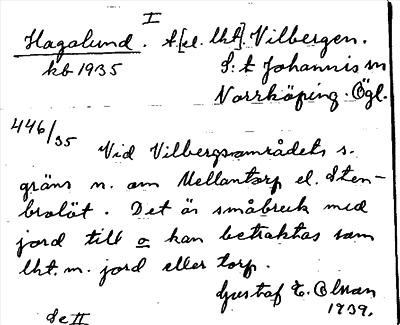 I
Hagalund. t.[el. lht.] Vilbergen.
kb 1935 S:t Johannis sn
Norrköping. Ögl.
446/35 Vid Vilbergsområdets s.
gräns n. om Mellantorp el. Sten-
brolöt. Det är småbruk med
jord till o kan betraktas som
lht. m. jord eller torp.
Gustaf E. Olsson
1939.
Se II